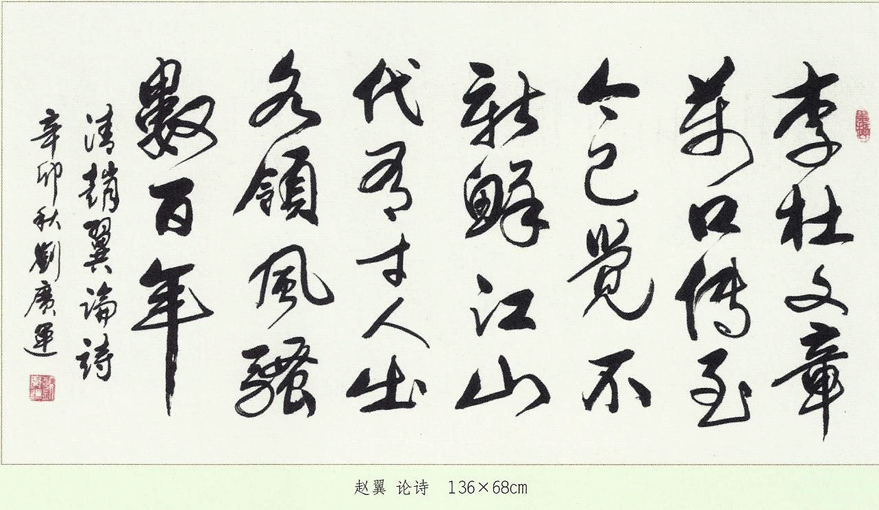 李杜文章
萬口傳至
今已覺不
新鮮江山
代有才人出
各領風騷
數百年
清趙翼論詩
辛卯秋劉廣運
赵翼 论诗 136×68cm